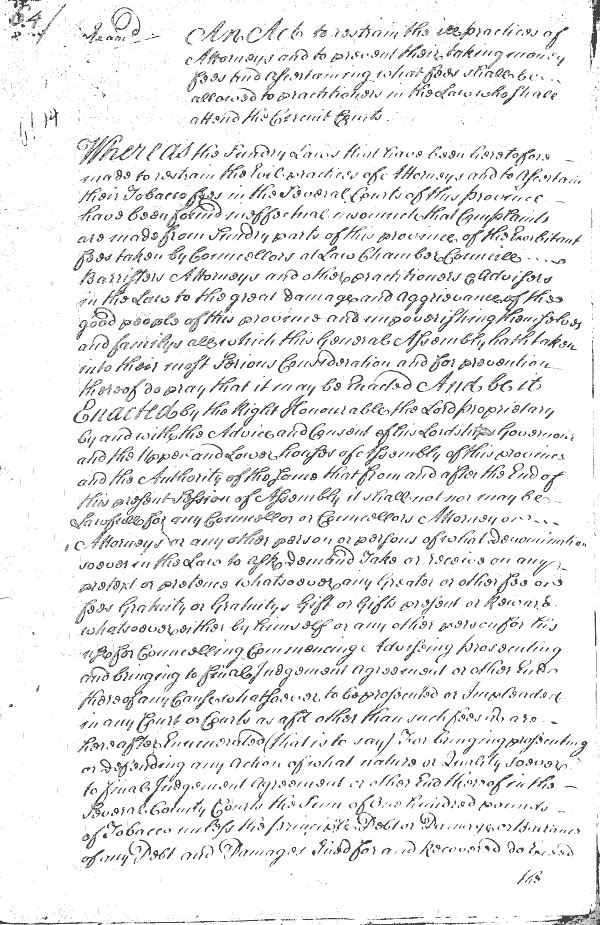 64/
Exam.d An Act to restrain the ill practices of
Attorneys and to prevent their taking money
fees and Ascertaining what fees shall be
allowed to practitioners in the Law who shall
attend the Circuit Courts
Whereas the Sundry Laws that have been heretofore
made to restrain the Evil practices of Attorneys and to Ascertain
their Tobacco fees in the Several Courts of this province
have been found ineffectual insomuch that Complaints
are made from Sundry parts of this province of the Exorbitant
fees taken by Councellors at Law Chamber Councill
Barristers Attorneys and other practitioners & Advisers
in the Law to the great damage and aggrievance of the
good people of this province and impoverishing themselves
and familys all which this General Assembly hath taken
into their most Serious Consideration and for prevention
thereof do pray that it may be Enacted And be it
Enacted by the Right Honourable the Lord proprietary
by and with the Advice and Consent of his Lordships Governour
and the Upper and Lower houses of Assembly of this province
and the Authority of the Same that from and after the End of
this present Session of Assembly it shall not nor may be
Lawfull for any Councellor or Councellors Attorney or
Attorneys or any other person or persons of what denomination
soever in the Law to ask demand Take or receive on any
pretext or pretence whatsoever any Greater or other fee or
fees Gratuity or Gratuitys Gift or Gifts present or Reward
whatsoever either by himself or any other person for his
use for Councelling Commencing Advising prosecuting
and bringing to final Judgement Agreement or other End
thereof any Cause whatsoever to be prosecuted or Impleaded
in any Court or Courts as afd other than such fees as are
hereafter Enumerated (that is to say) For bringing prosecuting
or defending any Action of what nature or Quality soever
to final Judgement Agreement or other End thereof in the
Several County Courts the Sum of One hundred pounds
of Tobacco unless the principle Debt or Damage or Ballance
of any Debt and Damages Sued for and Recovered do Exceed